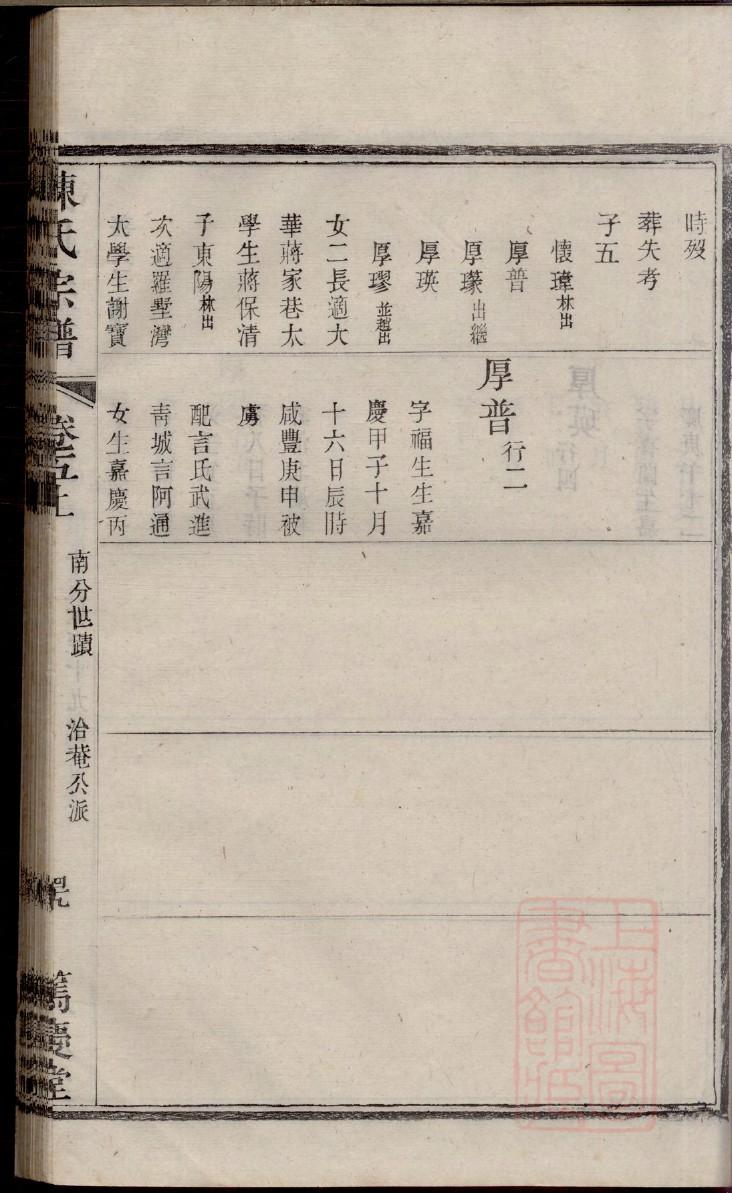 時殁
葬失考
子五
懷瑋林出
厚普
厚瓈出繼
厚瑛
厚璆並趙出
女二長適大
華蔣家巷太
學生蔣保淸
子東陽林出
次適羅墅灣
太學生謝寶
厚普行二
字福生生嘉
慶甲子十月
十六日辰時
咸豐庚申被
虜
配言氏武進
靑城言阿通
女生嘉慶丙
陳氏宗譜
卷五上
南分世蹟
洽菴公派
篤慶堂
上海圖
書館藏